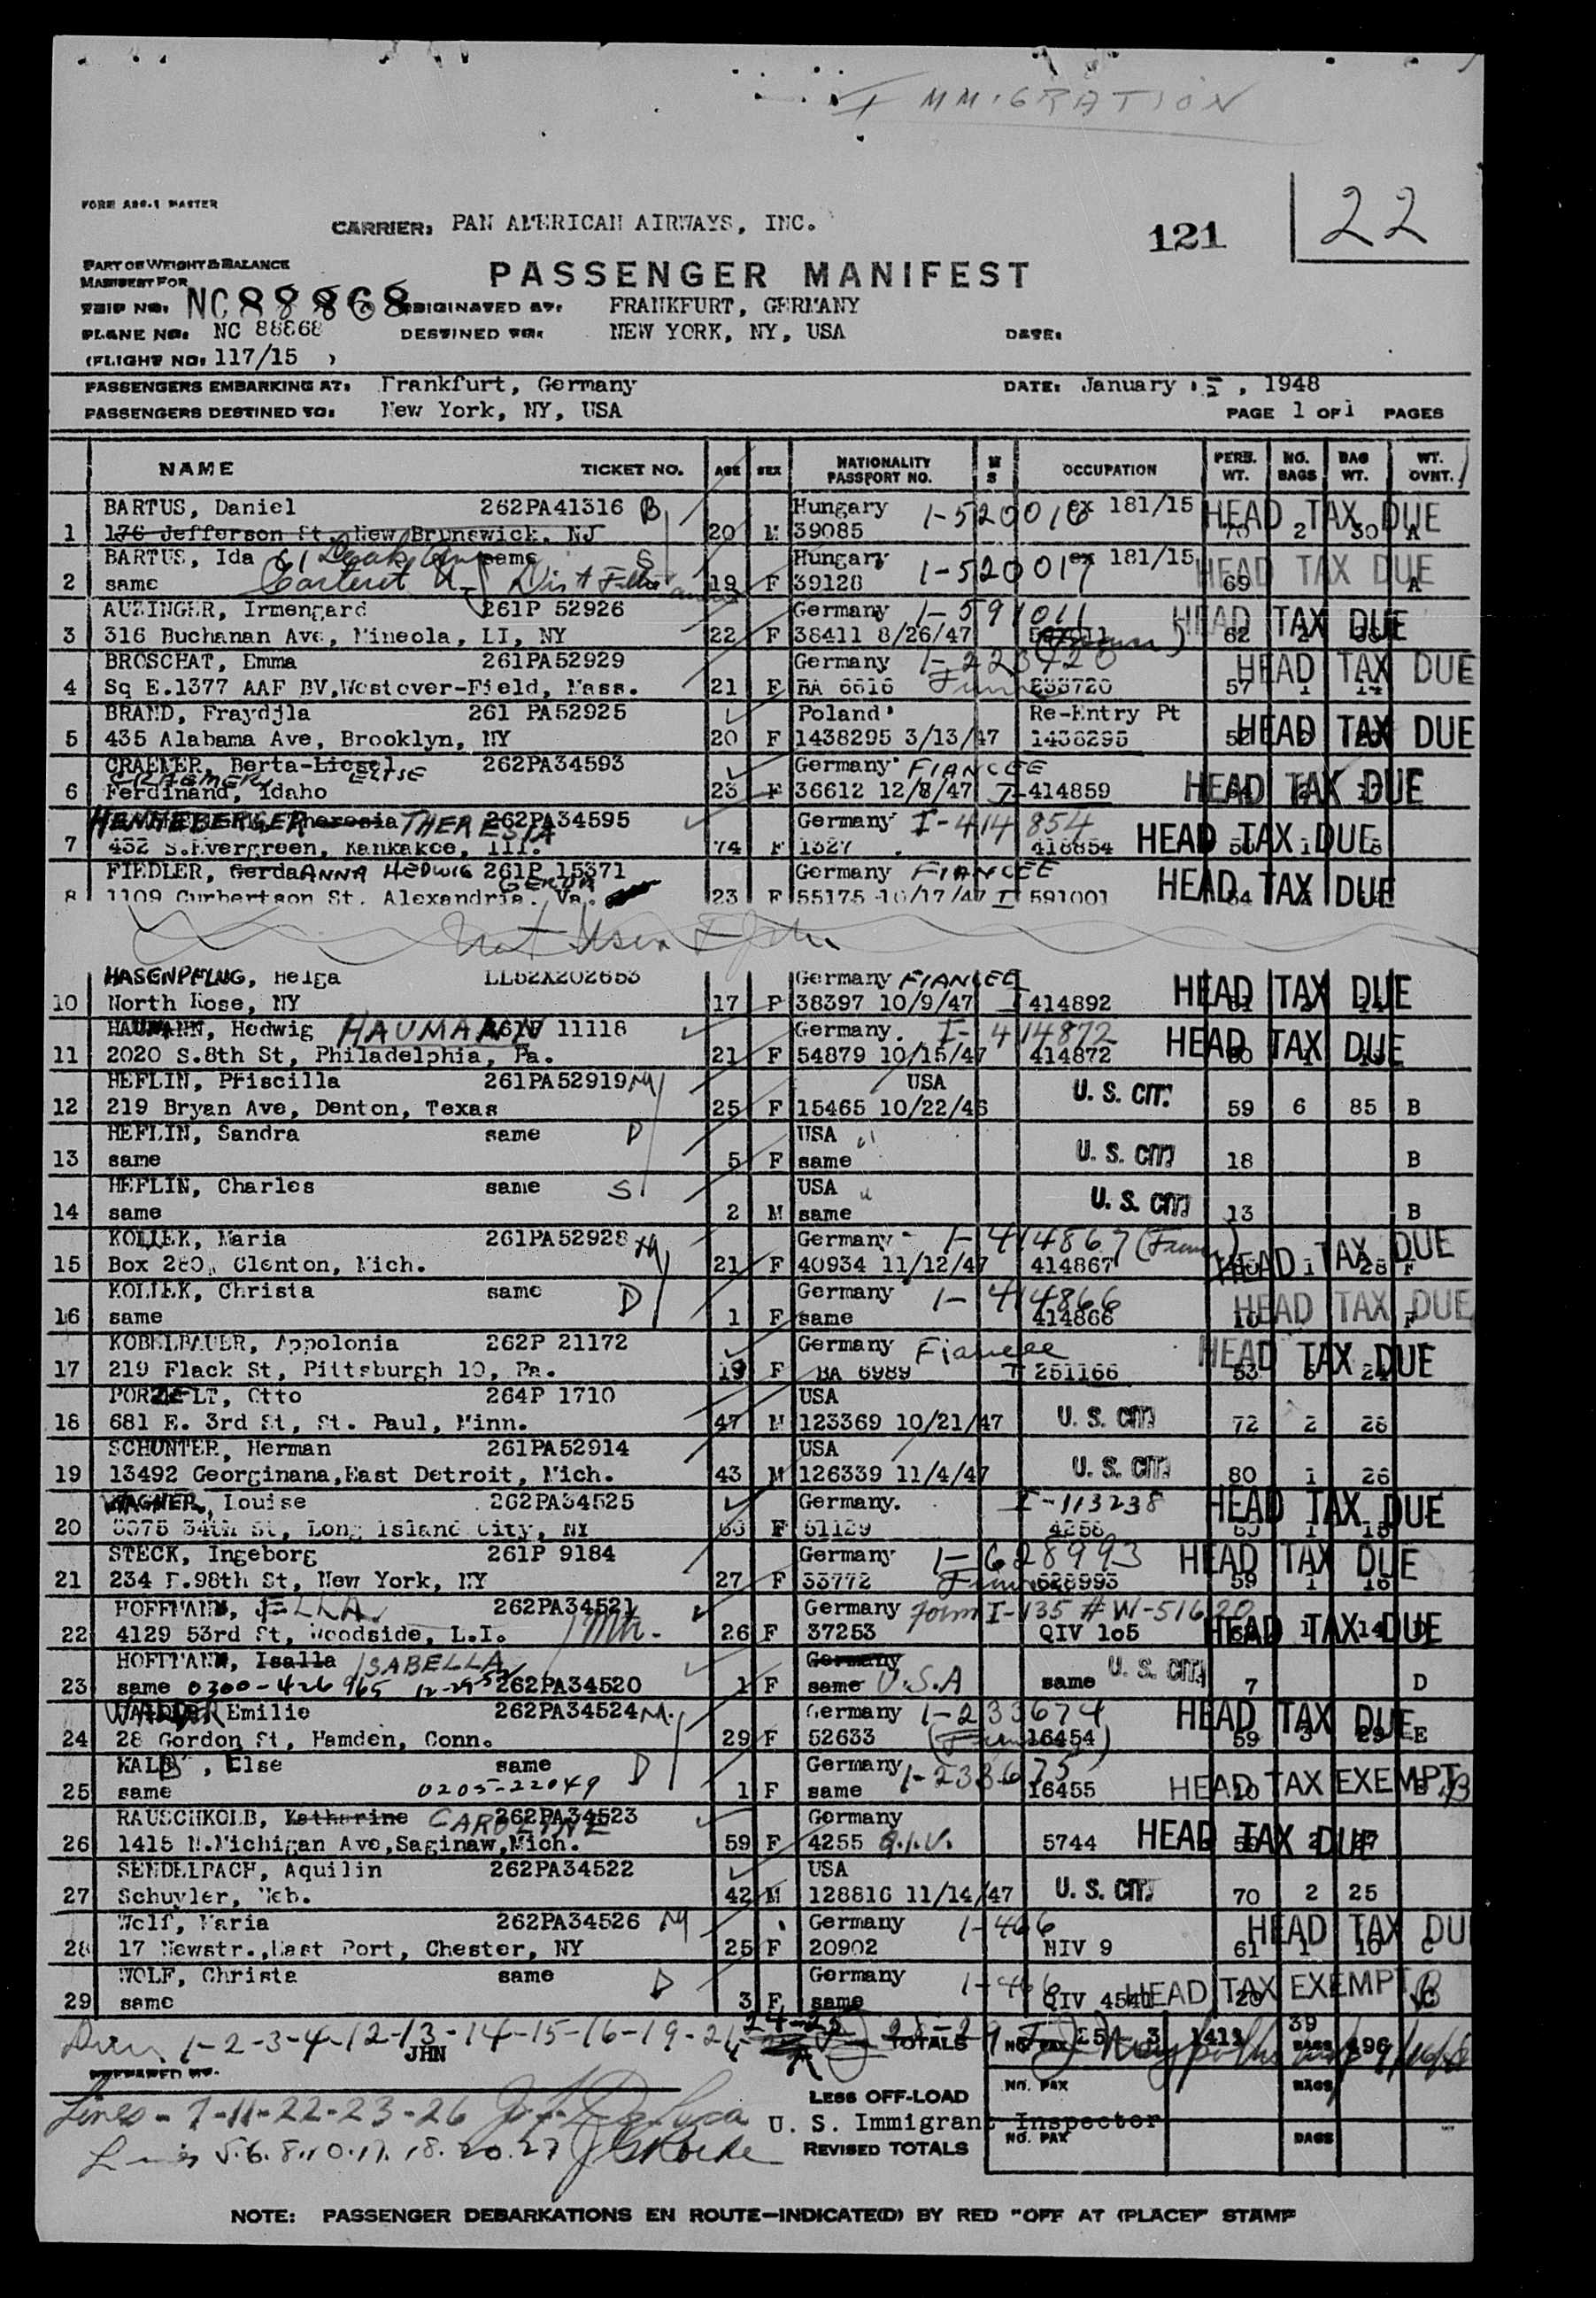 IMMIGRATION
FORM ABG-1 MASTER
CARRIER: PAN AMERICAN AIRWAYS, INC.
121
22
PART OF WEIGHT & BALANCE
MANIFEST FOR
PASSENGER MANIFEST
TRIP NO: NC88868 ORIGINATED AT: FRANKFURT, GERMANY
PLANE NO: NC 88868 DESTINED TO: NEW YORK, NY, USA DATE:
(FLIGHT NO: 117/15 )
PASSENGERS EMBARKING AT: Frankfurt, Germany DATE: January 15, 1948
PASSENGERS DESTINED TO: New York, NY, USA PAGE 1 OF 1 PAGES
NAME TICKET NO. AGE SEX NATIONALITY PASSPORT NO. M S OCCUPATION PERS. WT. NO. BAGS BAG WT. WT. OVNT.
BARTUS, Daniel 262PA41316 B Hungary 1-520016 ex 181/15 HEAD TAX DUE
1 176 Jefferson St, New Brunswick, NJ 20 M 39085 70 2 30 A
BARTUS, Ida 61 same S Hungary 1-520017 ex 181/15 HEAD TAX DUE
2 same Carteret NJ 19 F 39128 69 A
AUZINGER, Irmengard 261P 52926 Germany 1-591011 HEAD TAX DUE
3 316 Buchanan Ave, Mineola, LI, NY 22 F 38411 8/26/47 62
BROSCHAT, Emma 261PA52929 Germany 1-223720 HEAD TAX DUE
4 Sq E.1377 AAF BV,Westover-Field, Mass. 21 F BA 6616 57 1 14
BRAND, Fraydjla 261 PA52925 Poland Re-Entry Pt HEAD TAX DUE
5 435 Alabama Ave, Brooklyn, NY 20 F 1438295 3/13/47 1438295
CRAEMER, Berta-Liesel ELISE 262PA34593 Germany FIANCEE HEAD TAX DUE
6 Ferdinand, Idaho 23 F 36612 12/8/47 I-414859
HENNEBERGER Theresia THERESIA 262PA34595 Germany I-414854 HEAD TAX DUE
7 452 S.Evergreen, Kankakee, Ill. 74 F 1327 418854
FIEDLER, Gerda ANNA HEDWIG GERDA 261P 15371 Germany FIANCEE HEAD TAX DUE
8 1109 Curbertson St. Alexandria, Va. 23 F 55175 10/17/47 I 591001
HASENPFLUG, Helga LL62X202653 Germany FIANCEE HEAD TAX DUE
10 North Rose, NY 17 F 38397 10/9/47 I 414892
HAUMANN, Hedwig HAUMANN 11118 Germany I-414872 HEAD TAX DUE
11 2020 S.8th St, Philadelphia, Pa. 21 F 54879 10/15/47 414872
HEFLIN, Priscilla 261PA52919 M USA U. S. CIT.
12 219 Bryan Ave, Denton, Texas 25 F 15465 10/22/46 59 6 85 B
HEFLIN, Sandra same D USA U. S. CIT.
13 same 5 F same 18 B
HEFLIN, Charles same S USA U. S. CIT.
14 same 2 M same 13 B
KOLLEK, Maria 261PA52928 M Germany 1-414867 HEAD TAX DUE
15 Box 280, Clenton, Mich. 21 F 40934 11/12/47 414867 1 28 F
KOLLEK, Christa same D Germany 1-414866 HEAD TAX DUE
16 same 1 F same 414866 10 F
KOBELBAUER, Appolonia 262P 21172 Germany Fiancee HEAD TAX DUE
17 219 Flack St, Pittsburgh 10, Pa. 19 F BA 6989 I 251166 53
PORZELT, Otto 264P 1710 USA U. S. CIT.
18 681 E. 3rd St, St. Paul, Minn. 47 M 123369 10/21/47 72 2 28
SCHUNTER, Herman 261PA52914 USA U. S. CIT.
19 13492 Georginana,East Detroit, Mich. 43 M 126339 11/4/47 80 1 26
WAGNER, Louise 262PA34525 Germany. I-113238 HEAD TAX DUE
20 34th St, Long Island City, NY F 51129 4258
STECK, Ingeborg 261P 9184 Germany 1-628993 HEAD TAX DUE
21 234 E.98th St, New York, NY 27 F 33772 628993 59 1 16
HOFFMANN, ELLA 262PA34521 Germany form I-135 # W-51620
22 4129 53rd St, Woodside, L.I. 26 F 37253 QIV 105 HEAD TAX DUE
HOFFMANN, Isalla ISABELLA Germany U. S. CIT.
23 same 0300-426965 262PA34520 1 F same U.S.A same 7 D
WALDER Emilie 262PA34524 M. Germany 1-233674 HEAD TAX DUE
24 28 Gordon St, Hamden, Conn. 29 F 52633 16454 59 3 29 E
WALD , Else same D Germany 1-233675 HEAD TAX EXEMPT
25 same 0205-22049 1 F same 16455 10
RAUSCHKOLB, Katherine CAROLINE 262PA34523 Germany HEAD TAX DUE
26 1415 N.Michigan Ave,Saginaw,Mich. 59 F 4255 Q.I.V. 5744
SENDELBACH, Aquilin 262PA34522 USA U. S. CIT.
27 Schuyler, Neb. 42 M 128816 11/14/47 70 2 25
Wolf, Maria 262PA34526 M Germany 1-466 HEAD TAX DU
28 17 Newstr.,East Port, Chester, NY 25 F 20902 NIV 9 61 1 10 C
WOLF, Christa same D Germany 1-466 HEAD TAX EXEMPT
29 same 3 F same QIV 4540 20
1-2-3-4-12-13-14-15-16-19-21 24-25 28-29 TOTALS NO. PAX 1411 39 BAGS 496
JHN
PREPARED BY.
LESS OFF-LOAD NO. PAX BAGS
Lines - 7-11-22-23-26
U. S. Immigrant Inspector
Lines 5.6.8.10.17.18.20.27 REVISED TOTALS NO. PAX BAGS
NOTE: PASSENGER DEBARKATIONS EN ROUTE—INDICATE(D) BY RED "OFF AT (PLACE)" STAMP